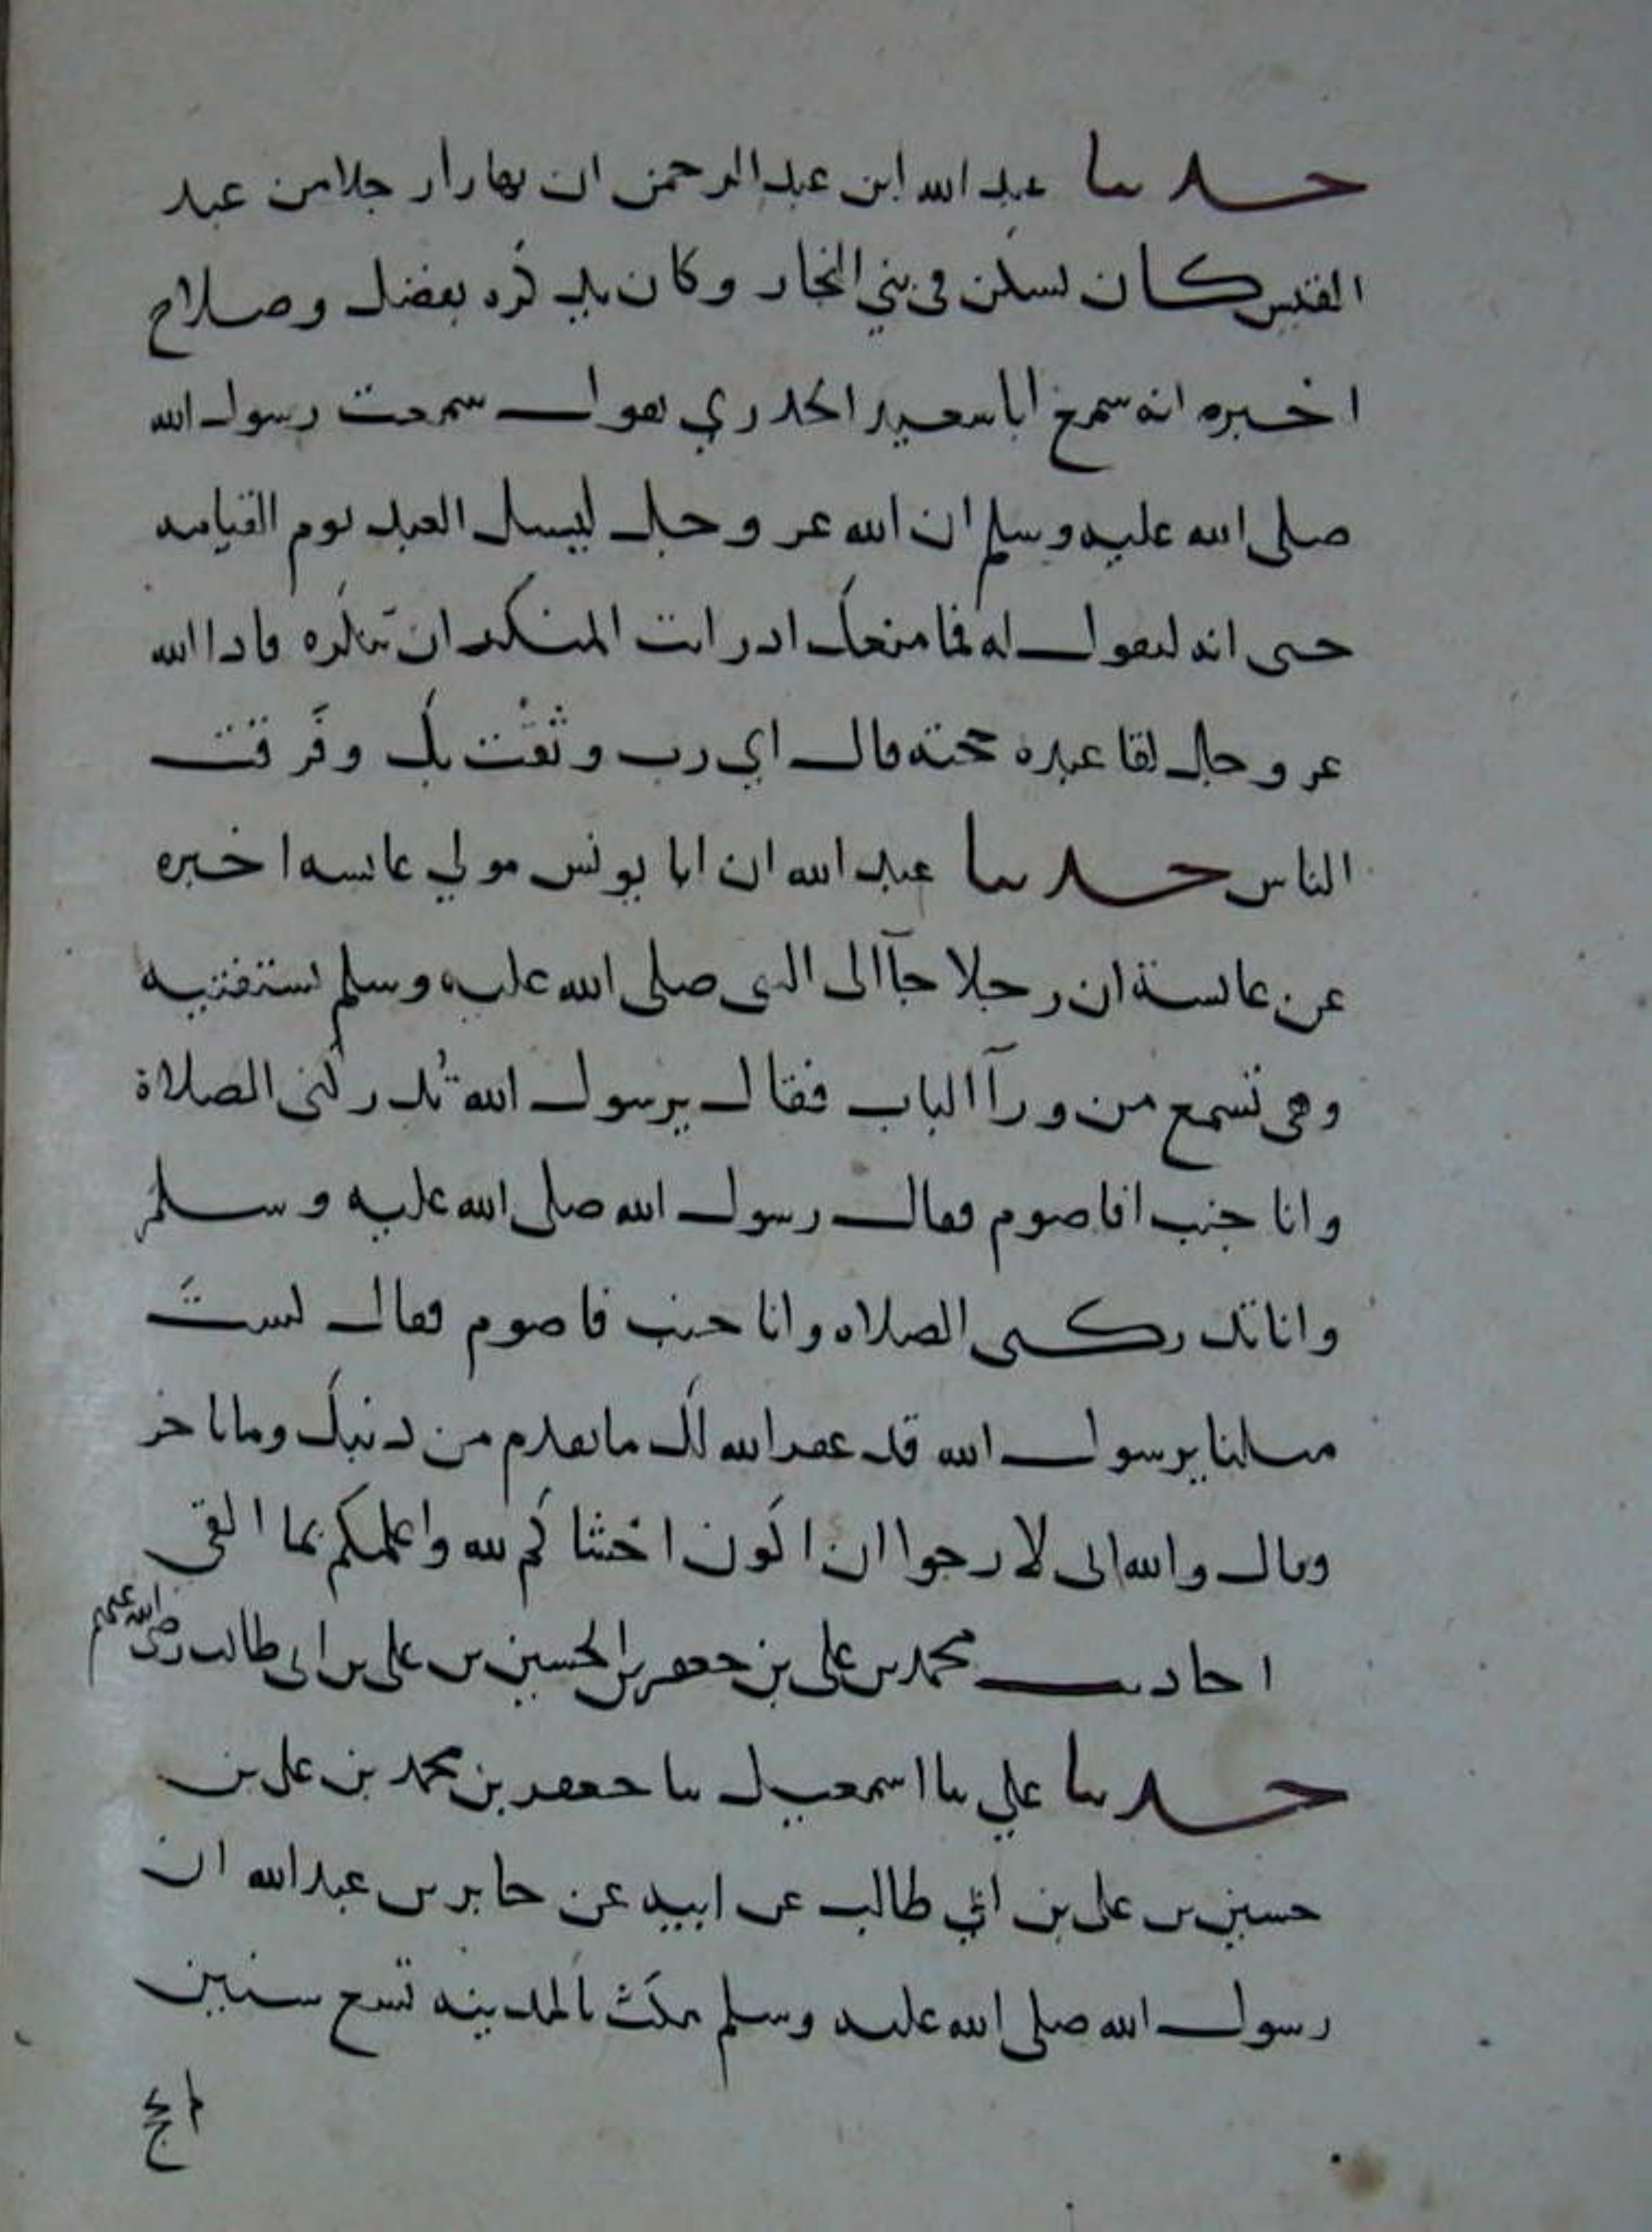 حدثنا عبد الله ابن عبد الرحمن ان نهارا رجلا من عبد
القيس كان يسكن في بني النجار وكان يذكره بفضل وصلاح
اخبره انه سمع ابا سعيد الخدري يقول سمعت رسول الله
صلى الله عليه وسلم ان الله عز وجل ليسل العبد يوم القيامه
حتى انه ليقول له فما منعك اذ رايت المنكر ان تنكره فاذا الله
عز وجل لقا عبده حجته قال اي رب وثقت بك وفرقت
الناس حدثنا عبد الله ان ابا يونس مولي عايشه اخبره
عن عايشة ان رجلا جآ الى النبى صلى الله عليه وسلم يستفتيه
وهى تسمع من ورآ الباب فقال يرسول الله تُدركنى الصلاة
وانا جنب افاصوم فقال رسول الله صلى الله عليه وسلم
وانا تدركنى الصلاه وانا جنب فاصوم فقال لستَ
مثلنا يرسول الله قد غفر الله لك ما تقدم من ذنبك وما تاخر
وقال والله انى لارجوا ان اكون اخشاكم لله واعلمكم بما القى
احاديث محمد بن على بن جعفر بن الحسين بن على بن ابى طالب رضى الله عنهم
حدثنا علي نا اسمعيل نا جعفر بن محمد بن على بن
حسين بن على بن ابي طالب عن ابيه عن جابر بن عبد الله ان
رسول الله صلى الله عليه وسلم مكث بالمدينه تسع سنين
لم يحج